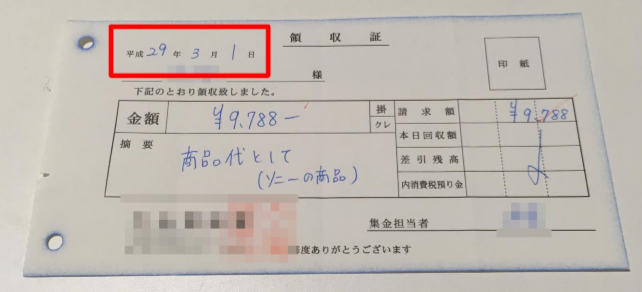 領収証
平成29年3月1日
様
印紙
下記のとおり領収致しました。
金額 ¥9,788－
掛
クレ
請求額 ¥9,788
本日回収額
差引残高
内消費税預り金
摘要
商品代として
(ソニーの商品)
集金担当者
度ありがとうございます